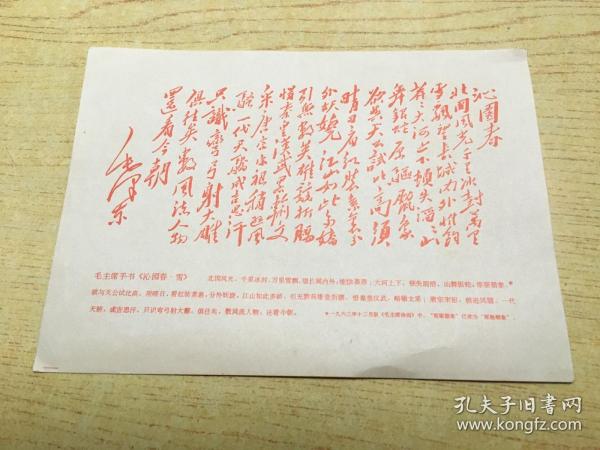 沁园春
北国风光千里冰封万里
雪飘望长城内外惟余
莽莽大河上下顿失滔滔山
舞银蛇原驱腊象
欲与天公试比高须
晴日看红装素裹
分外妖娆江山如此多娇
引无数英雄竞折腰
惜秦皇汉武略输文
采唐宗宋祖稍逊风
骚一代天骄成吉思汗
只识弯弓射大雕
俱往矣数风流人物
还看今朝
毛泽东
毛主席手书《沁园春·雪》 北国风光，千里冰封，万里雪飘。望长城内外，惟馀莽莽；大河上下，顿失滔滔。山舞银蛇，原驱腊象*，
欲与天公试比高。须晴日，看红装素裹，分外妖娆。江山如此多娇，引无数英雄竞折腰。惜秦皇汉武，略输文采；唐宗宋祖，稍逊风骚。一代
天骄，成吉思汗，只识弯弓射大雕。俱往矣，数风流人物，还看今朝。
*一九六三年十二月版《毛主席诗词》中，“原驱腊象”已改为“原驰蜡象”。
孔夫子旧书网
www.kongfz.com